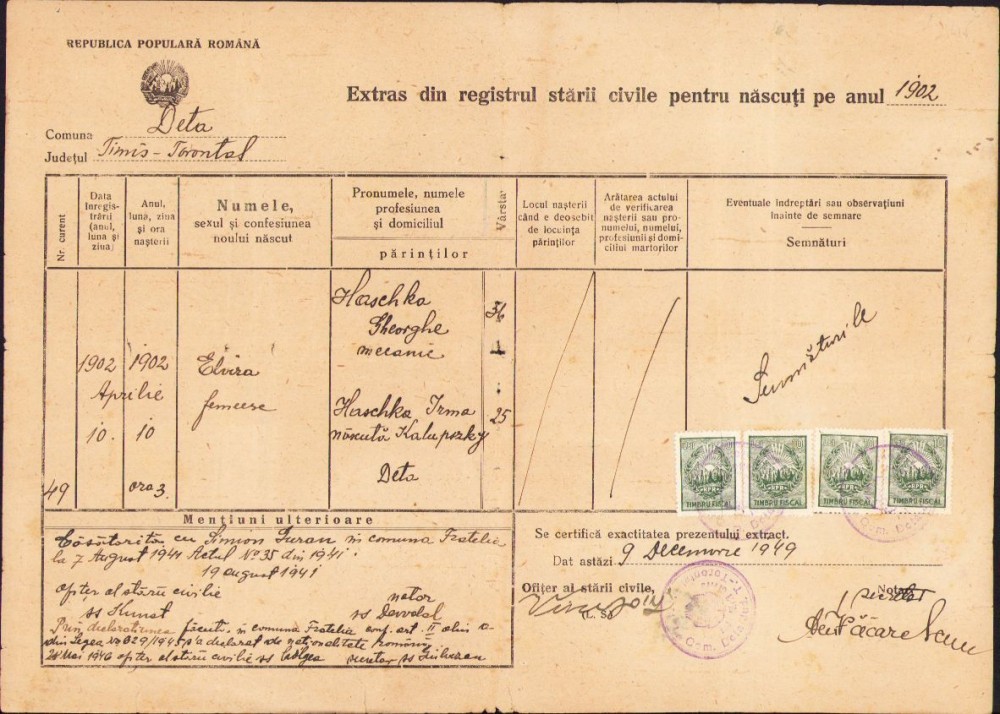 REPUBLICA POPULARĂ ROMÂNĂ
Extras din registrul stării civile pentru născuți pe anul 1902
Comuna Deta
Județul Timiș-Torontal
Nr. curent
Data înregistrării (anul, luna și ziua)
Anul, luna, ziua și ora nașterii
Numele, sexul și confesiunea noului născut
Pronumele, numele profesiunea și domiciliul
părinților
Vârsta
Locul nașterii când e deosebit de locuința părinților
Arătarea actului de verificarea nașterii sau pronumelui, numelui, profesiunii și domiciliul martorilor
Eventuale îndreptări sau observațiuni înainte de semnare
Semnături
49
1902
Aprilie
10.
1902
10
ora 3.
Elvira
femeese
Haschka
Gheorghe
mecanic
Haschka Irma
născută Kalupszky
Deta
25
Semnăturile
TIMBRU FISCAL
TIMBRU FISCAL
TIMBRU FISCAL
TIMBRU FISCAL
Mențiuni ulterioare
Căsătorită cu Simion Suran în comuna Fratelia
la 7 August 1941 Actul No 35 din 1941.
19 August 1941
ofițer al stării civile
notar
ss
ss
Prin declarațiunea făcută în comuna Fratelia conf. art II alin a
din Legea No 629/1945 s'a declarat de naționalitate Română
28 Mai 1946 ofițer al stării civile ss
secretar ss
Se certifică exactitatea prezentului extract.
Dat astăzi 9 Decemvrie 1949
Ofițer al stării civile,
(L. S.)